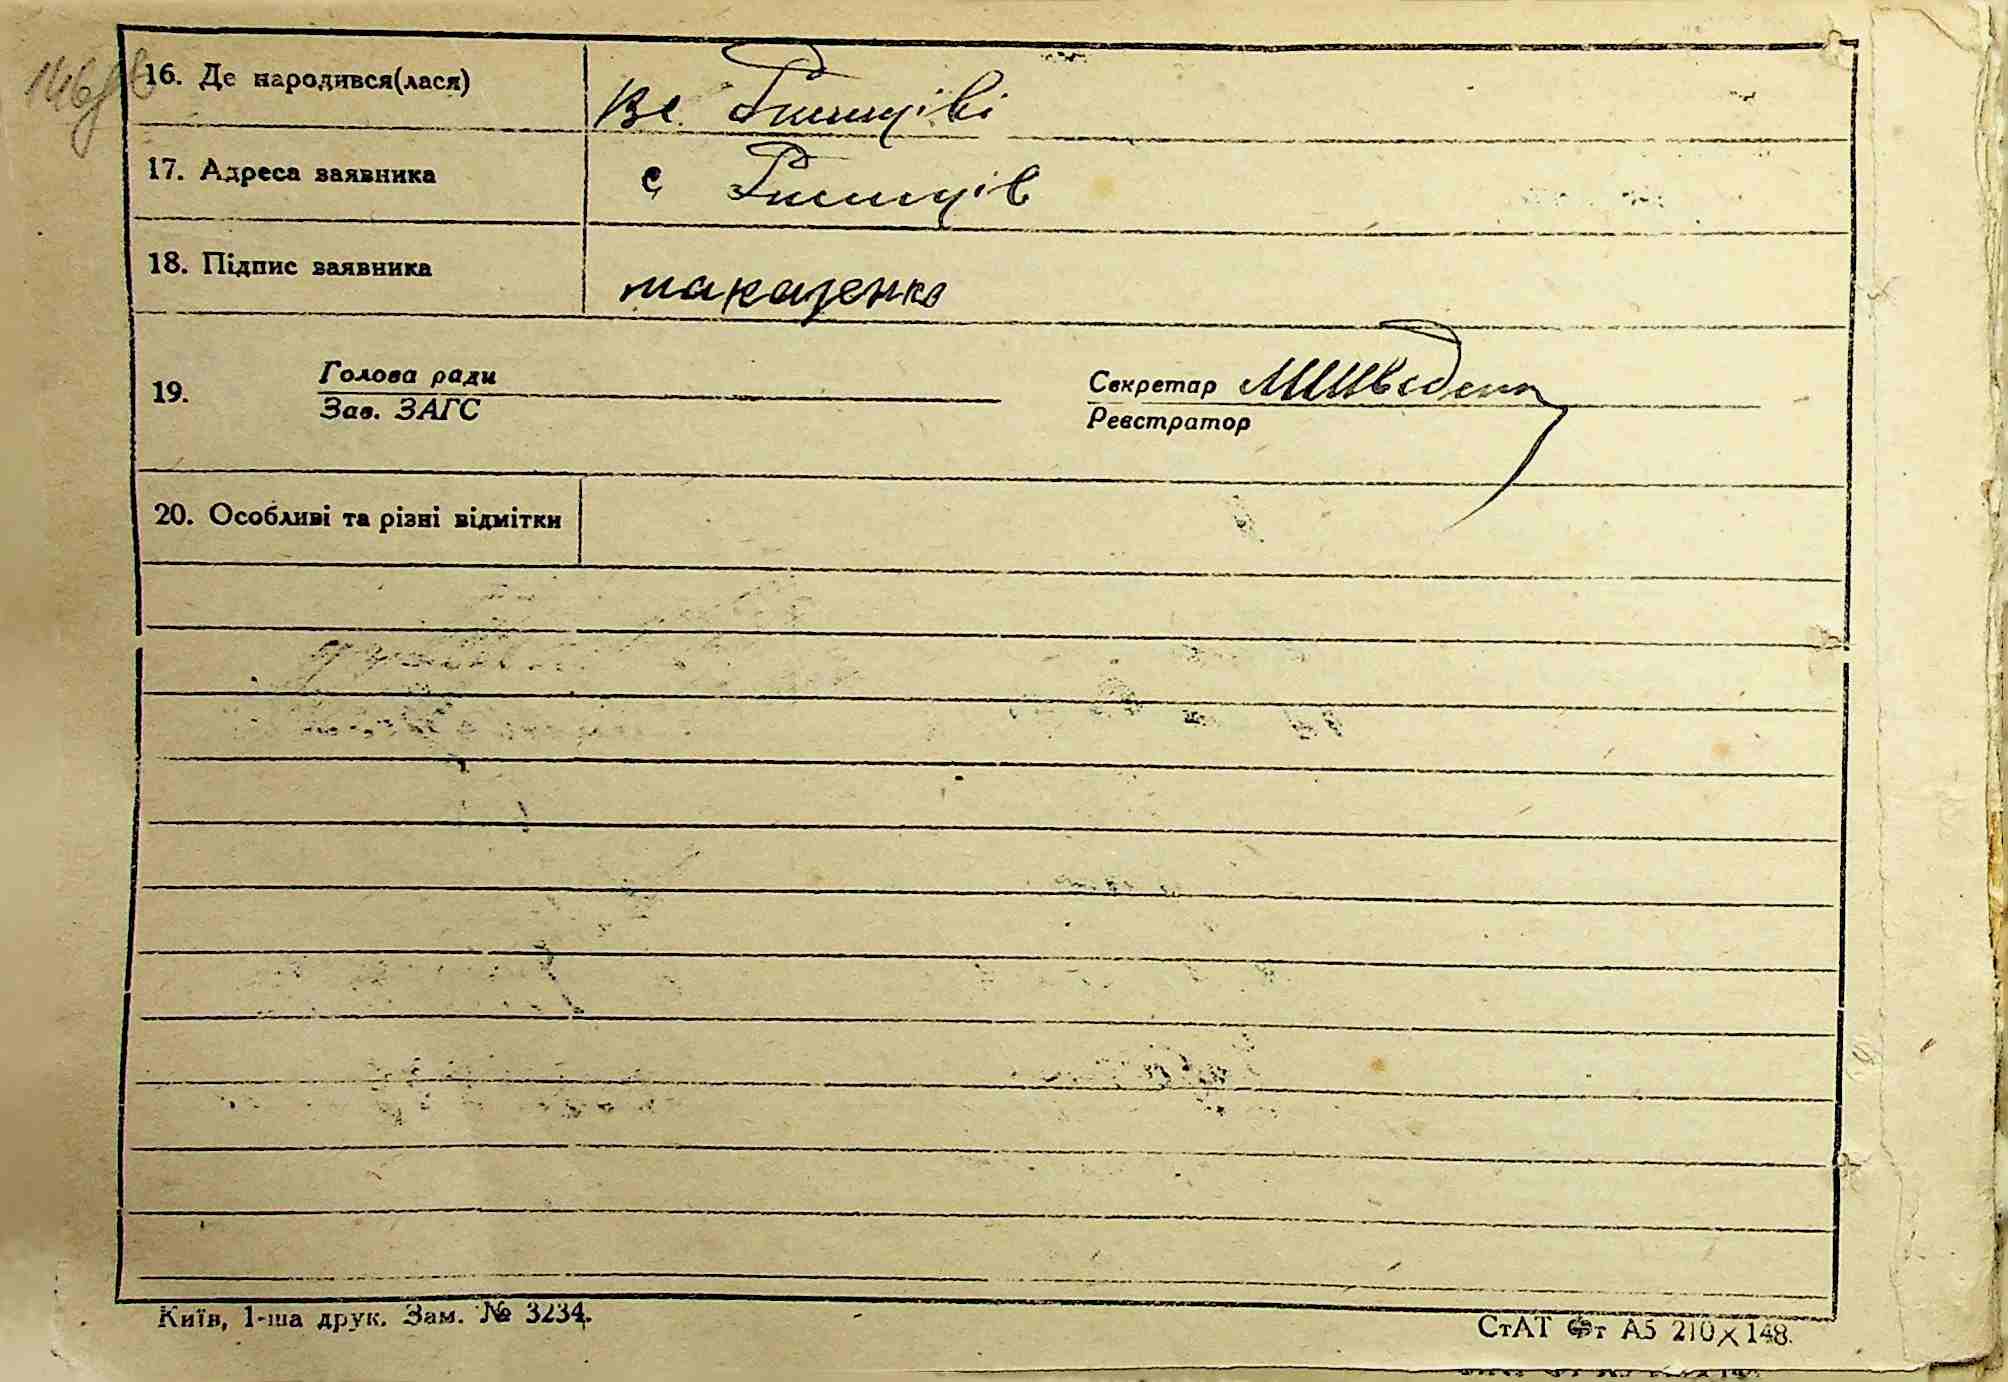 16. Де народився(лася) в с. Гнищіві
17. Адреса заявника с Гнищів
18. Підпис заявника макаренко
19. Голова ради Секретар
Зав. ЗАГС Реєстратор
20. Особливі та різні відмітки
Київ, 1-ша друк. Зам. № 3234.
СтАТ Фт А5 210×148.